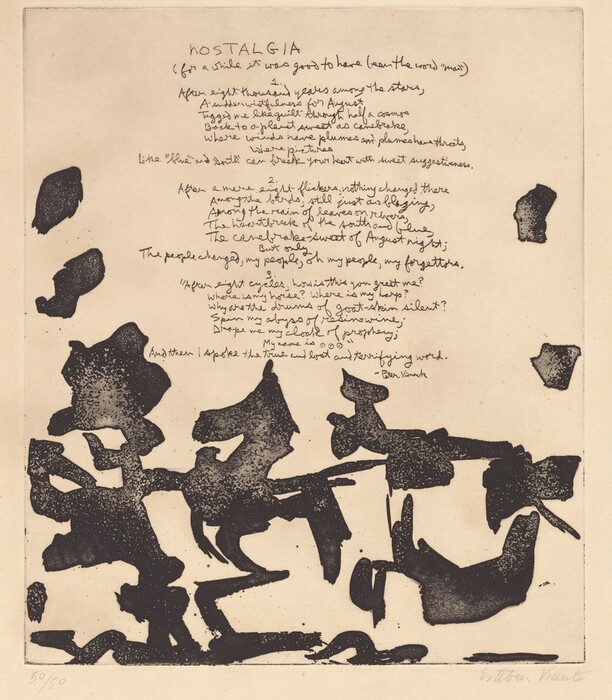 NOSTALGIA
(for a while it was good to have been the word "man")
1.
After eight thousand years among the stars,
A sudden wistfulness for August
Tugged me like guilt through half a cosmos
Back to a planet sweet as canebrake,
Where winds have plumes and plumes have throats,
Where pictures
Like "blue" and "south" can break your heart with sweet suggestiveness.
2.
After a mere eight flickers, nothing changed there
Among the birds, still just as blazing,
Among the rain of leaves on rivers,
The heartbreak of the south and blue,
The canebrake-sweet of August night;
But only
The people changed, my people, oh my people, my forgettors.
3.
"After eight cycles, how is this you greet me?
Where is my horse? Where is my harp?
Why are the drums of goat-skin silent?
Spin my abyss of resin-wine;
Drape me my cloak of prophecy;
My name is"
And then I spoke the true and lost and terrifying word.
- Peter Viereck
50/50
Esteban Vicente